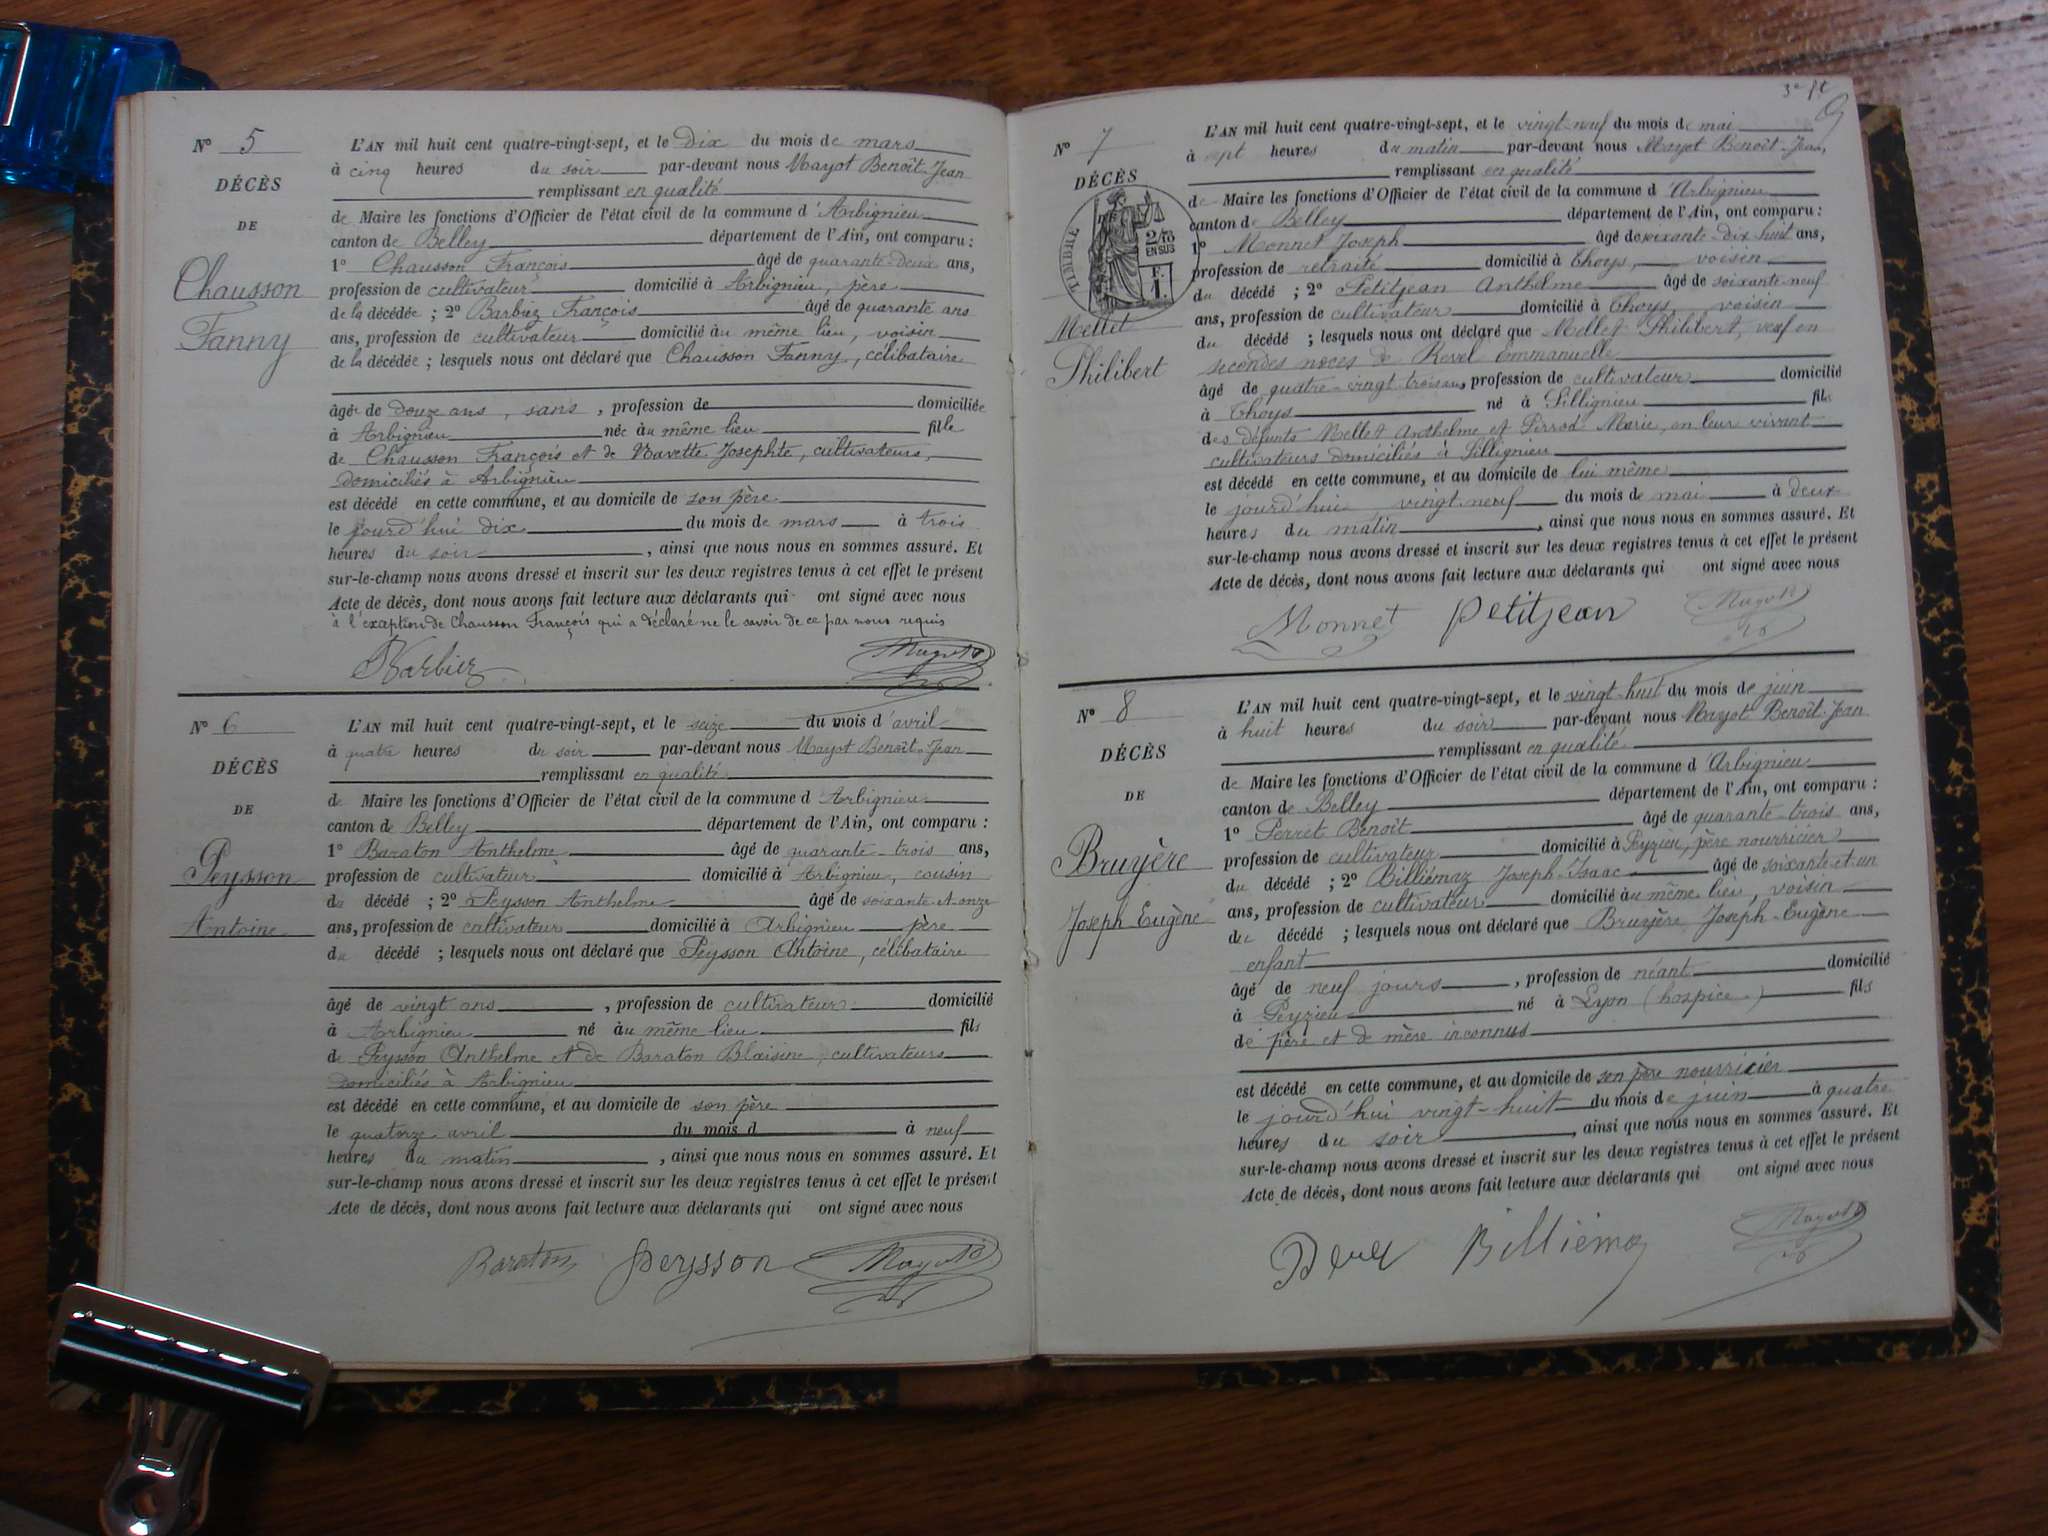 N° 5
DÉCÈS
DE
Chausson
Fanny
L'AN mil huit cent quatre-vingt-sept, et le Dix du mois de mars
à cinq heures du soir par-devant nous Mayot Benoît-Jean
remplissant en qualité
de Maire les fonctions d'Officier de l'état civil de la commune d'Arbignieu
canton de Belley département de l'Ain, ont comparu :
1° Chausson François âgé de quarante-deux ans,
profession de cultivateur domicilié à Arbignieu, père
de la décédée ; 2° Barbiez François âgé de quarante ans
ans, profession de cultivateur domicilié au même lieu, voisin
de la décédée ; lesquels nous ont déclaré que Chausson Fanny, célibataire
âgée de douze ans, sans, profession de domiciliée
à Arbignieu née au même lieu fille
de Chausson François et de Navette Josephte, cultivateurs,
domiciliés à Arbignieu
est décédé en cette commune, et au domicile de son père
le jourd'hui dix du mois de mars à trois
heures du soir, ainsi que nous nous en sommes assuré. Et
sur-le-champ nous avons dressé et inscrit sur les deux registres tenus à cet effet le présent
Acte de décès, dont nous avons fait lecture aux déclarants qui ont signé avec nous
à l'exaption de Chausson François qui a déclaré ne le savoir de ce par nous requis
Barbiez Mayot
N° 6
DÉCÈS
DE
Peysson
Antoine
L'AN mil huit cent quatre-vingt-sept, et le seize du mois d'avril
à quatre heures du soir par-devant nous Mayot Benoît-Jean
remplissant en qualité
de Maire les fonctions d'Officier de l'état civil de la commune d'Arbignieu
canton de Belley département de l'Ain, ont comparu :
1° Baraton Anthelme âgé de quarante-trois ans,
profession de cultivateur domicilié à Arbignieu, cousin
du décédé ; 2° Peysson Anthelme âgé de soixante et onze
ans, profession de cultivateur domicilié à Arbignieu père
du décédé ; lesquels nous ont déclaré que Peysson Antoine, célibataire
âgé de vingt ans, profession de cultivateur domicilié
à Arbignieu né au même lieu fils
de Peysson Anthelme et de Baraton Blaisine, cultivateurs
domiciliés à Arbignieu
est décédé en cette commune, et au domicile de son père
le quatorze avril du mois d à neuf
heures du matin, ainsi que nous nous en sommes assuré. Et
sur-le-champ nous avons dressé et inscrit sur les deux registres tenus à cet effet le présent
Acte de décès, dont nous avons fait lecture aux déclarants qui ont signé avec nous
Baraton peysson Mayot
3e ft
N° 7
DÉCÈS
TIMBRE
2/10
EN SUS
F.
1.
Mellet
Philibert
L'AN mil huit cent quatre-vingt-sept, et le vingt-neuf du mois de mai
à sept heures du matin par-devant nous Mayot Benoît-Jean,
remplissant en qualité
de Maire les fonctions d'Officier de l'état civil de la commune d'Arbignieu
canton de Belley département de l'Ain, ont comparu :
1° Monnet Joseph âgé de soixante-dix-huit ans,
profession de retraité domicilié à Thoys, voisin
du décédé ; 2° Petitjean Anthelme âgé de soixante-neuf
ans, profession de cultivateur domicilié à Thoys, voisin
du décédé ; lesquels nous ont déclaré que Mellet Philibert, veuf en
secondes noces de Revel Emmanuelle
âgé de quatre-vingt-trois ans, profession de cultivateur domicilié
à Thoys né à Sillignieu fils
des défunts Mellet Anthelme et Pirrod Marie, en leur vivant
cultivateurs domiciliés à Sillignieu
est décédé en cette commune, et au domicile de lui même
le jourd'hui vingt-neuf du mois de mai à deux
heures du matin, ainsi que nous nous en sommes assuré. Et
sur-le-champ nous avons dressé et inscrit sur les deux registres tenus à cet effet le présent
Acte de décès, dont nous avons fait lecture aux déclarants qui ont signé avec nous
Monnet petitjean Mayot
N° 8
DÉCÈS
DE
Bruyère
Joseph-Eugène
L'AN mil huit cent quatre-vingt-sept, et le vingt-huit du mois de juin
à huit heures du soir par-devant nous Mayot Benoît-Jean
remplissant en qualité
de Maire les fonctions d'Officier de l'état civil de la commune d'Arbignieu
canton de Belley département de l'Ain, ont comparu :
1° Perret Benoît âgé de quarante-trois ans,
profession de cultivateur domicilié à Peyzieu, père nourricier
du décédé ; 2° Billiémaz Joseph-Isaac âgé de soixante et un
ans, profession de cultivateur domicilié au même lieu, voisin
du décédé ; lesquels nous ont déclaré que Bruyère Joseph-Eugène
enfant
âgé de neuf jours, profession de néant domicilié
à Peyzieu né à Lyon (hospice) fils
de père et de mère inconnus
est décédé en cette commune, et au domicile de son père nourricier
le jourd'hui vingt-huit du mois de juin à quatre
heures du soir, ainsi que nous nous en sommes assuré. Et
sur-le-champ nous avons dressé et inscrit sur les deux registres tenus à cet effet le présent
Acte de décès, dont nous avons fait lecture aux déclarants qui ont signé avec nous
Billiémaz Mayot